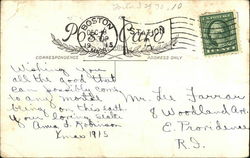 BOSTON
Post Card
1915
CORRESPONDENCE
ADDRESS ONLY
Wishing you
all the good that
can possibly come
to any mortal
being on this earth
Your loving Sister
Anna L. Robinson
Xmas 1915
Mr. Lee Farrar
8 Woodland Ave
E. Providence
R.I.